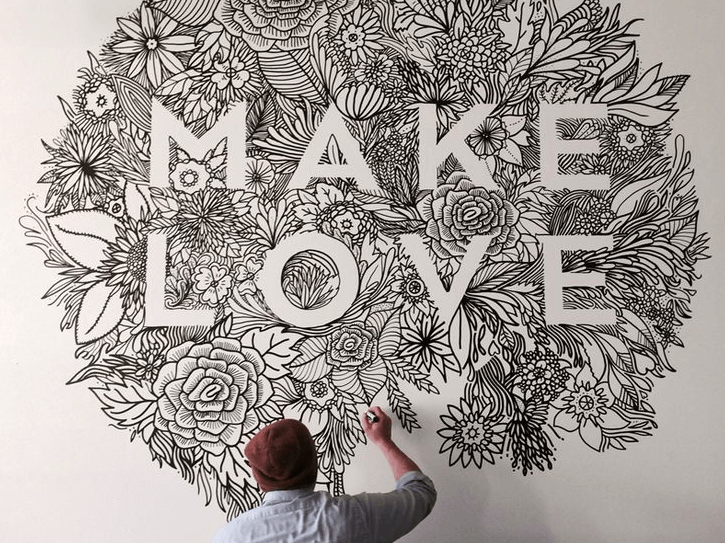 MAKE
LOVE